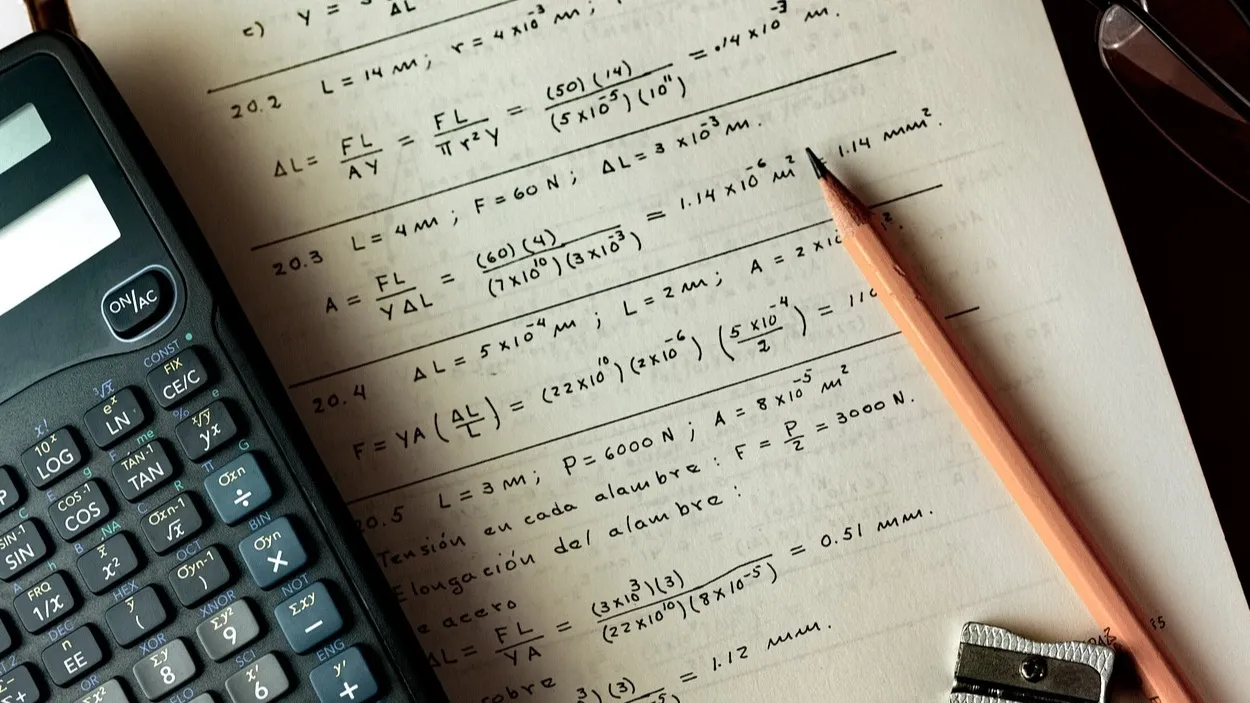 c) Y = ΔL
20.2 L = 14 m; r = 4×10⁻³ m;
ΔL = FL/AY = FL/πr²Y = (50)(14)/(5×10⁻⁵)(10¹¹) = .14×10⁻³ m.
20.3 L = 4 m; F = 60 N; ΔL = 3×10⁻³ m.
A = FL/YΔL = (60)(4)/(7×10¹⁰)(3×10⁻³) = 1.14×10⁻⁶ m² = 1.14 mm².
20.4 ΔL = 5×10⁻⁴ m; L = 2 m; A = 2×10
F = YA(ΔL/L) = (22×10¹⁰)(2×10⁻⁶)(5×10⁻⁴/2) = 110
20.5 L = 3 m; P = 6000 N; A = 8×10⁻⁵ m²
Tensión en cada alambre: F = P/2 = 3000 N.
Elongación del alambre:
e acero
ΔL = FL/YA = (3×10³)(3)/(22×10¹⁰)(8×10⁻⁵) = 0.51 mm.
cobre
³)(3) = 1.12 mm.
ON/AC
CONST
FIX
CE/C
³√x
eˣ
LN
% e
ˣ√y
yx
x!
10ˣ
LOG
me
TAN-1
TAN
π G
σxn
÷
COS-1
COS
σxn-1
√x
BIN
σyn
×
SIN-1
SIN
NA
x̄
x²
OCT
σyn-1
)
NOT
Σxy
−
FRQ
1/x
HEX
ȳ
(
XNOR
Σy²
9
ENG
y'
+
DEC
n
EE
XOR
Σy
8
SCI
x'
6
OR
Σx²